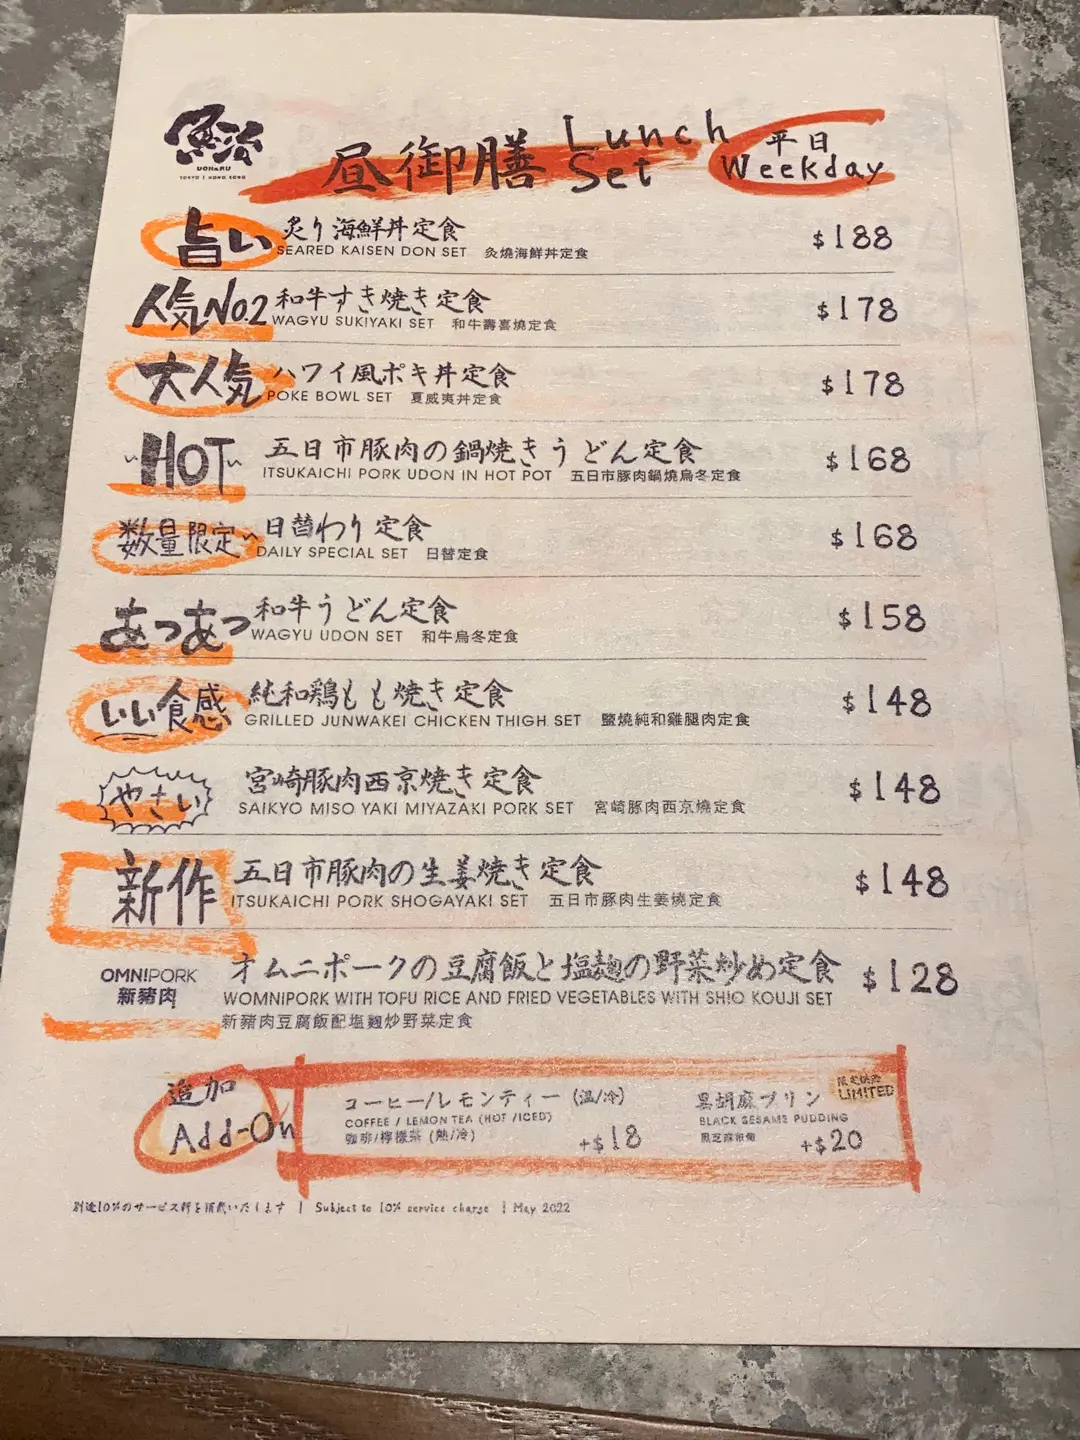 魚治
UOHARU
TOKYO | HONG KONG
昼御膳 Lunch Set
平日
Weekday
旨い
炙り海鮮丼定食 $188
SEARED KAISEN DON SET 灸燒海鮮丼定食
人気No.2
和牛すき焼き定食 $178
WAGYU SUKIYAKI SET 和牛壽喜燒定食
大人気
ハワイ風ポキ丼定食 $178
POKE BOWL SET 夏威夷丼定食
HOT
五日市豚肉の鍋焼きうどん定食 $168
ITSUKAICHI PORK UDON IN HOT POT 五日市豚肉鍋燒烏冬定食
数量限定
日替わり定食 $168
DAILY SPECIAL SET 日替定食
あつあつ
和牛うどん定食 $158
WAGYU UDON SET 和牛烏冬定食
いい食感
純和鶏もも焼き定食 $148
GRILLED JUNWAKEI CHICKEN THIGH SET 鹽燒純和雞腿肉定食
やさい
宮崎豚肉西京焼き定食 $148
SAIKYO MISO YAKI MIYAZAKI PORK SET 宮崎豚肉西京燒定食
新作
五日市豚肉の生姜焼き定食 $148
ITSUKAICHI PORK SHOGAYAKI SET 五日市豚肉生姜燒定食
OMNIPORK
新豬肉
オムニポークの豆腐飯と塩麹の野菜炒め定食 $128
WOMNIPORK WITH TOFU RICE AND FRIED VEGETABLES WITH SHIO KOUJI SET
新豬肉豆腐飯配塩麴炒野菜定食
追加
Add-On
コーヒー/レモンティー (温/冷)
COFFEE / LEMON TEA (HOT /ICED)
咖啡/檸檬茶 (熱/冷) +$18
黒胡麻プリン
LIMITED
BLACK SESAME PUDDING
黑芝麻布甸 +$20
別途10%のサービス料を頂戴いたします | Subject to 10% service charge | May 2022